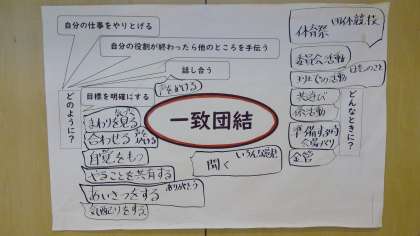 自分の仕事をやりとげる
自分の役割が終わったら他のところを手伝う
話し合う
目標を明確にする
声をかける
どのように?
まわりを見る
合わせる
自覚をもつ
やることを共有する
ありがとう
あいさつをする
気配りをする
一致団結
聞く
いろんな意見
体育祭
団体競技
委員会活動
日々のこと
共遊び
係活動
準備する時
会場作り
全管
どんなときに?